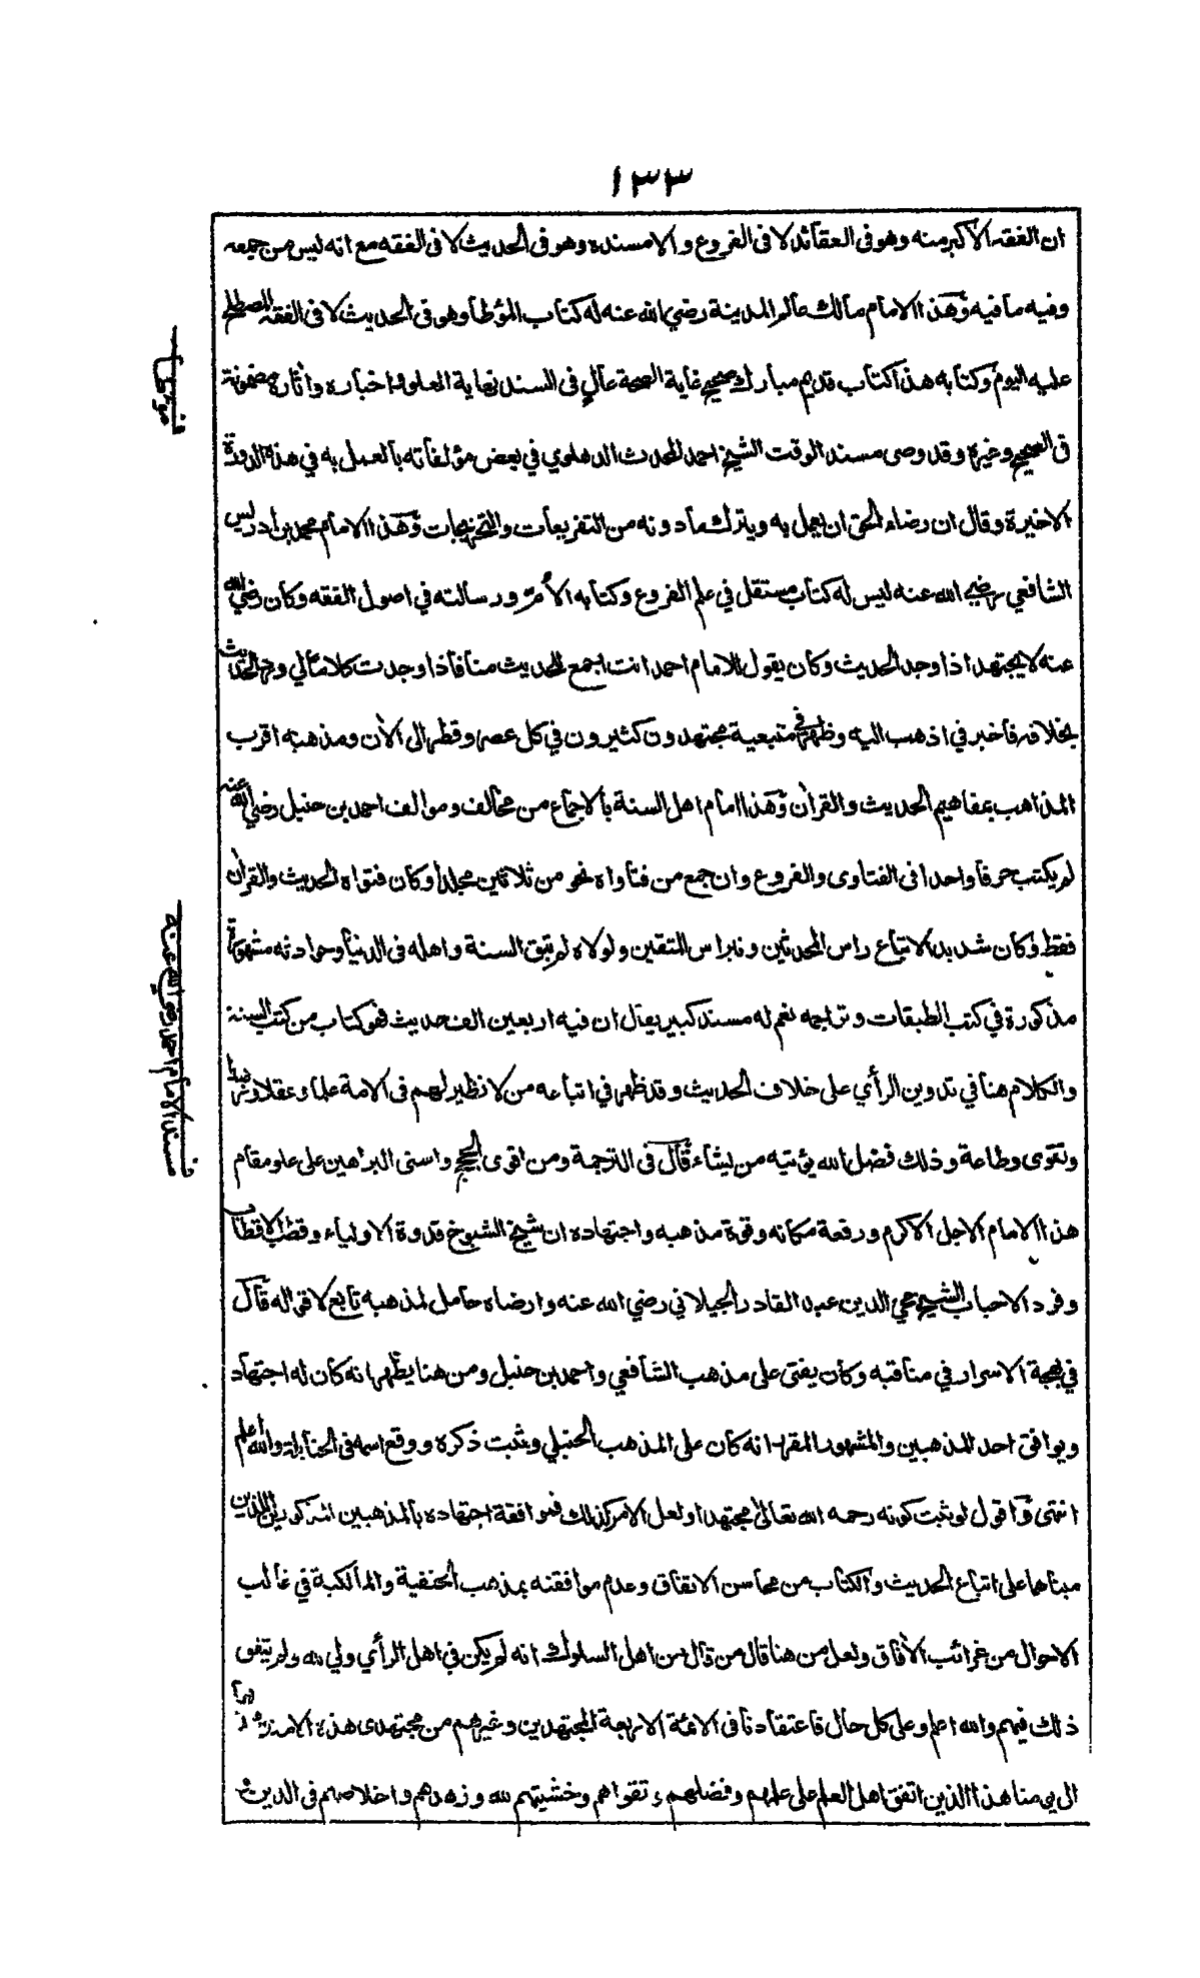 ١٣٣
ان الفقه الأكبر منه وهو فى العقائد لا فى الفروع و الا مسنده وهو فى الحديث لا فى الفقه مع انه ليس من جمعه
وفيه ما فيه وَهذا الامام مالك عالم المدينة رضي الله عنه له كتاب المؤطا وهو فى الحديث لا فى الفقه المصطلح
عليه اليوم وكتابه هذا كتاب قديم مبارك صحيح غاية الصحة عالٍ فى السند نهاية العلو واخباره وأثاره مضمونة
فى الصحيح وغيره وقد وصى مسند الوقت الشيخ احمد المحدث الدهلوي في بعض مؤلفاته بالعمل به في هذه الدورة
الاخيرة وقال ان رضاء الحق ان يعمل به ويترك ما دونه من التفريعات والتخريجات وَهذا الامام محمد بن ادريس
الشافعي رضي الله عنه ليس له كتاب مستقل في علم الفروع وكتابه الأمّ ورسالته في اصول الفقه وكان رضي الله
عنه لا يجتهد اذا وجد الحديث وكان يقول للامام احمد انت اجمع للحديث منا فاذا وجدت كلاما لي وجه الحديث
بخلافه فأخبرني اذهب اليه وظهر في متبعيه مجتهدون كثيرون في كل عصر وقطر الى الأن ومذهبه اقرب
المذاهب بمفاهيم الحديث والقرأن وَهذا امام اهل السنة بالاجماع من مخالف وموالف احمد بن حنبل رضي الله عنه
لم يكتب حرفا واحدا فى الفتاوى والفروع وان جمع من فتاواه نحو من ثلاثين مجلدا وكان فتواه الحديث والقرأن
فقط وكان شديد الاتباع راس المحدثين ونبراس المتقين ولولاه لم يبق السنة واهله فى الدنيا وحوادثه مشهورة
مذكورة في كتب الطبقات وتراجمه نعم له مسند كبير يقال ان فيه اربعين الف حديث فهو كتاب من كتب السنة
والكلام هنا في تدوين الرأي على خلاف الحديث وقد ظهر في اتباعه من لا نظير لهم فى الامة علما وعقلا وزهدا
وتقوى وطاعة وذلك فضل الله يؤتيه من يشاء قَال فى الترجمة ومن اقوى الحجج واسنى البراهين على علو مقام
هذا الامام الاجل الاكرم ورفعة مكانه وقوة مذهبه واجتهاده ان شيخ الشيوخ قدوة الاولياء وقطب الاقطاب
وفرد الاحباب الشيخ محي الدين عبد القادر الجيلاني رضي الله عنه وارضاه حامل لمذهبه تابع لاقواله قَال
في بهجة الاسرار في مناقبه وكان يفتى على مذهب الشافعي واحمد بن حنبل ومن هنا يظهر انه كان له اجتهاد
ويوافق احد المذهبين والمشهور المقرر انه كان على المذهب الحنبلي ويثبت ذكره ووقع اسمه فى الحنابلة والله أعلم
انتهى وَاقول لو ثبت كونه رحمه الله تعالى مجتهدا ولعل الامر كذلك فموافقة اجتهاده بالمذهبين المذكورين اللذين
مبناهما على اتباع الحديث والكتاب من محاسن الاتفاق وعدم موافقته بمذهب الحنفية والمالكية في غالب
الاحوال من غرائب الأفاق ولعل من هنا قال من قال من اهل السلوك انه لم يكن في اهل الرأي ولي لله ولم يتفق
ذلك فيهم والله اعلم وعلى كل حال فاعتقادنا فى الائمة الاربعة المجتهدين وغيرهم من مجتهدى هذه الامة
الى يومنا هذا الذين اتفق اهل العلم على علمهم وفضلهم وتقواهم وخشيتهم لله وزهدهم واخلاصهم فى الدين
ف موطا
ف مسند الامام احمد رضي الله عنه